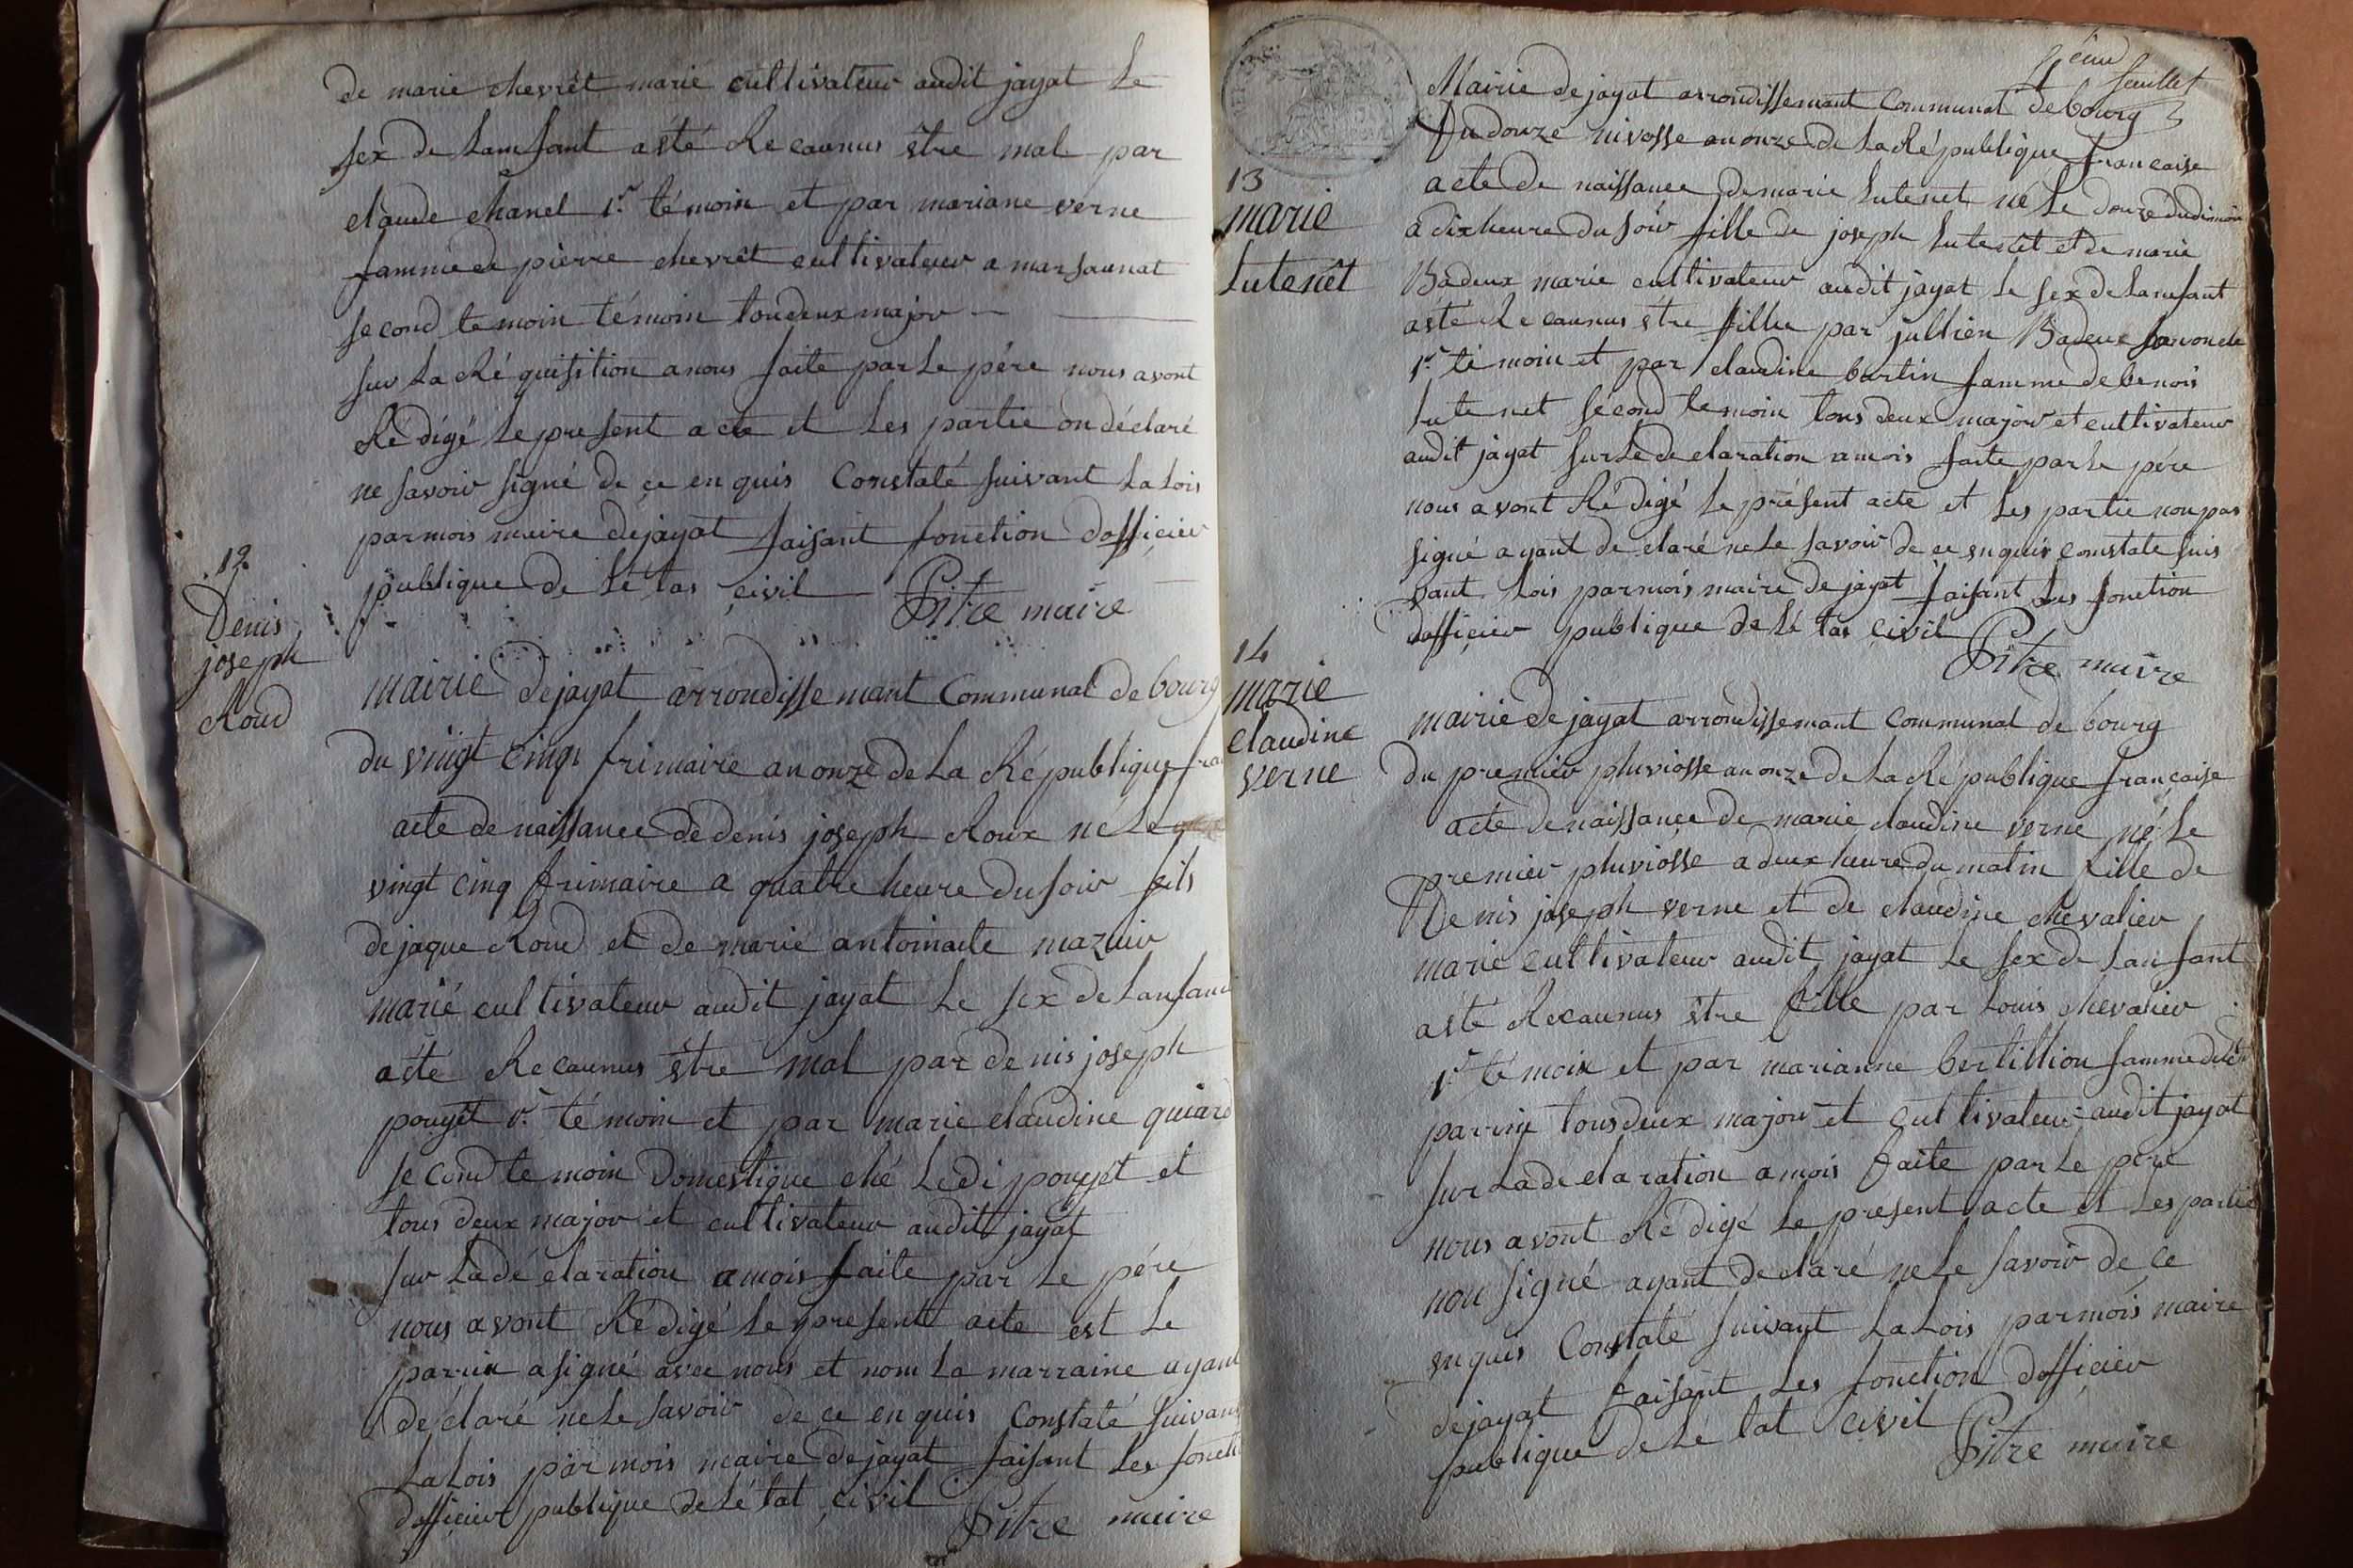 de marie chevrêt marié cultivateur audit jayat le
sex de lamfant a été Recaunus être mal par
claude chanel 1.r témoin et par mariane verne
famme de pierre chevrêt cultivateur a marsaunat
second temoin témoin toudeux major
sur la Réquisition a nous faite par le pére nous avont
Rédigé le present acte et les partie on déclaré
ne savoir signé de ce enquis Constaté suivant la lois
par mois maire de jayat faisant fonction dofficier
publique de lé tas civil Pitre maire
12
Denis
joseph
Roud
mairie de jayat arrondissemant Communal de bourg
du vingt cinq frimaire an onze de la République fra
acte de naissance de denis joseph Roux né le
vingt cinq frimaire a quatre heure du soir fils
de jaque Roud et de marie antoinaite mazuir
marié cultivateur audit jayat le sex de lanfant
a été Recaunus être mal par denis joseph
pouget 1.r témoin et par marie claudine quiard
second temoin domestique ché ledi pouget et
tous deux major et cultivateur audit jayat
sur la dé claration a mois faite par le pére
nous avont Rédigé le present acte est le
parrin a signé avec nous et nom la marraine ayant
déclaré ne le savoir de ce enquis Constaté suivant
la lois par mois maire de jayat faisant les foncti
dofficier publique de lé tat civil Pitre maire
feuillet
Mairie de jayat arrondissemant Communal de bourg
Du douze nivosse an onze de la République francaise
13
marie
Lutenêt
acte de naissance de marie Lutenet né le douze dudi mois
a dix heure du soir fille de joseph Lutenet et de marie
Badeux marie cultivateur audit jayat le sex de lanfant
a été Recaunus étre fille par jullien Badeux son oncle
1.r témoin et par claudine bertin famme de benois
Lutenet second temoin tous deux major et cultivateur
audit jayat sur la declaration a mois faite par le pére
nous avont Rédigé le présent acte et les partie non pas
signé ayant de claré ne le savoir de ce enquis comstate suis
vant lois par mois maire de jayat faisant les fonction
dofficier publique de lé tas civil
Pitre maire
14
marie
claudine
verne
mairie de jayat arrondissemant communal de bourg
du premier pluviosse an onze de la République francaise
acte de naissance de marie claudine verne né le
premier pluviosse a deux heure du matin fille de
Denis joseph verne et de claudine chevalier
marie cultivateur audit jayat le sex de lanfant
a été Recaunus être fille par louis chevalier
1.r témoin et par marianne bertillion famme dudit
parrin tous deux major et cultivateur audit jayat
sur la de claration a mois faite par le pere
nous avont Rédigé le present acte et les partie
non signé ayant declaré ne le savoir de ce
enquis Constaté suivant la lois par mois maire
de jayat faisant les fonction dofficier
publique de lé tat civil
Pitre maire